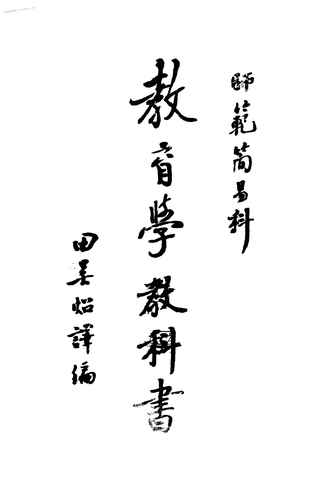 師範簡易科
教育學教科書
田吴炤譯編